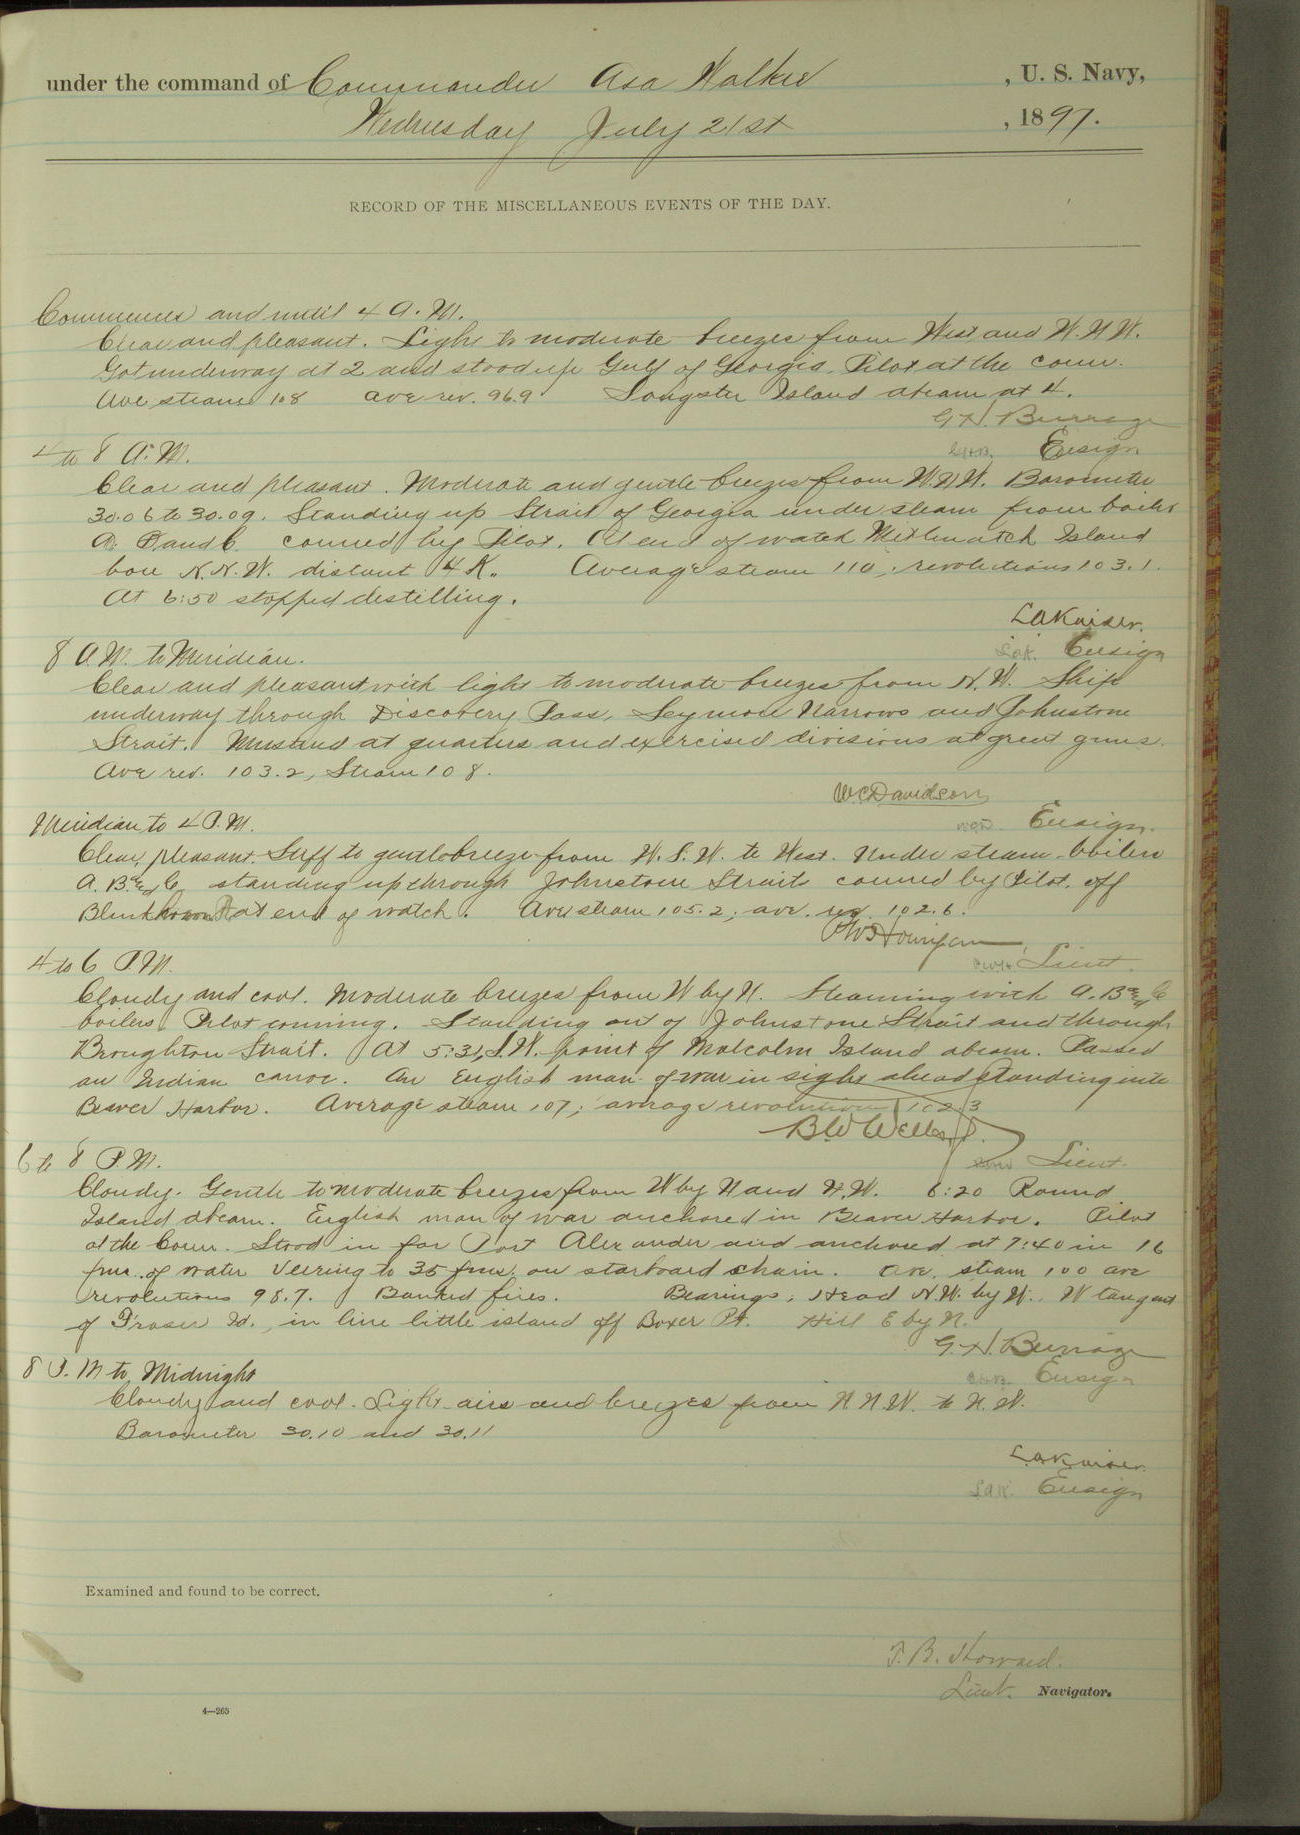 under the command of Commander Asa Walker, U. S. Navy,
Wednesday July 21st, 1897.
RECORD OF THE MISCELLANEOUS EVENTS OF THE DAY.
Commences and until 4 A.M.
Clear and pleasant. Light to moderate breezes from West and W.N.W.
Got underway at 2 and stood up Gulf of Georgia. Pilot at the conn.
Ave steam 108 ave rev. 96.9 Sangster Island abeam at 4.
G.H. Burrage
G.H.B. Ensign
4 to 8 A.M.
Clear and pleasant. Moderate and gentle breezes from W.N.W. Barometer
30.06 to 30.09. Standing up Strait of Georgia under steam from boilers
A, B and C conned by Pilot. At end of watch Mitlenatch Island
bore N.N.W. distant 4 K. Average steam 110; revolutions 103.1.
At 6:50 stopped distilling.
L.A. Kaiser.
L.A.K. Ensign
8 A.M. to Meridian.
Clear and pleasant with light to moderate breezes from N.W. Ship
underway through Discovery Pass, Seymour Narrows and Johnstone
Strait. Mustered at quarters and exercised divisions at great guns.
Ave rev. 103.2, Steam 108.
W.C. Davidson
W.C.D. Ensign.
Meridian to 4 P.M.
Clear, pleasant. Stiff to gentle breeze from W.S.W. to West. Under steam boilers
A. B. and C, standing up through Johnstone Strait conned by Pilot. off
Blinkhorn Pt at end of watch. Ave steam 105.2; ave. rev. 102.6.
P.W. Hourigan
P.W.H. Lieut.
4 to 6 P.M.
Cloudy and cool. Moderate breezes from W by N. Steaming with A. B. and C
boilers. Pilot conning. Standing out of Johnstone Strait and through
Broughton Strait. At 5:31, S.W. point of Malcolm Island abeam. Passed
an Indian canoe. An English man of war in sight ahead standing into
Beaver Harbor. Average steam 107; average revolutions 102.3
B.W. Wells Jr.
B.W.W. Lieut.
6 to 8 P.M.
Cloudy. Gentle to moderate breezes from W by N and N.W. 6:20 Round
Island abeam. English man of war anchored in Beaver Harbor. Pilot
at the Conn. Stood in for Port Alexander and anchored at 7:40 in 16
fms. of water veering to 35 fms. on starboard chain. Ave. steam 100 ave
revolutions 98.7. Banked fires. Bearings; Head N.W. by W., W tangent
of Fraser Id., in line little island off Boxer Pt. Hill E by N.
G.H. Burrage
G.H.B. Ensign
8 P.M. to Midnight
Cloudy and cool. Light airs and breezes from N.N.W. to N.W.
Barometer 30.10 and 30.11
L.A. Kaiser.
L.A.K. Ensign
Examined and found to be correct.
T.B. Howard.
Lieut. Navigator.
4—265